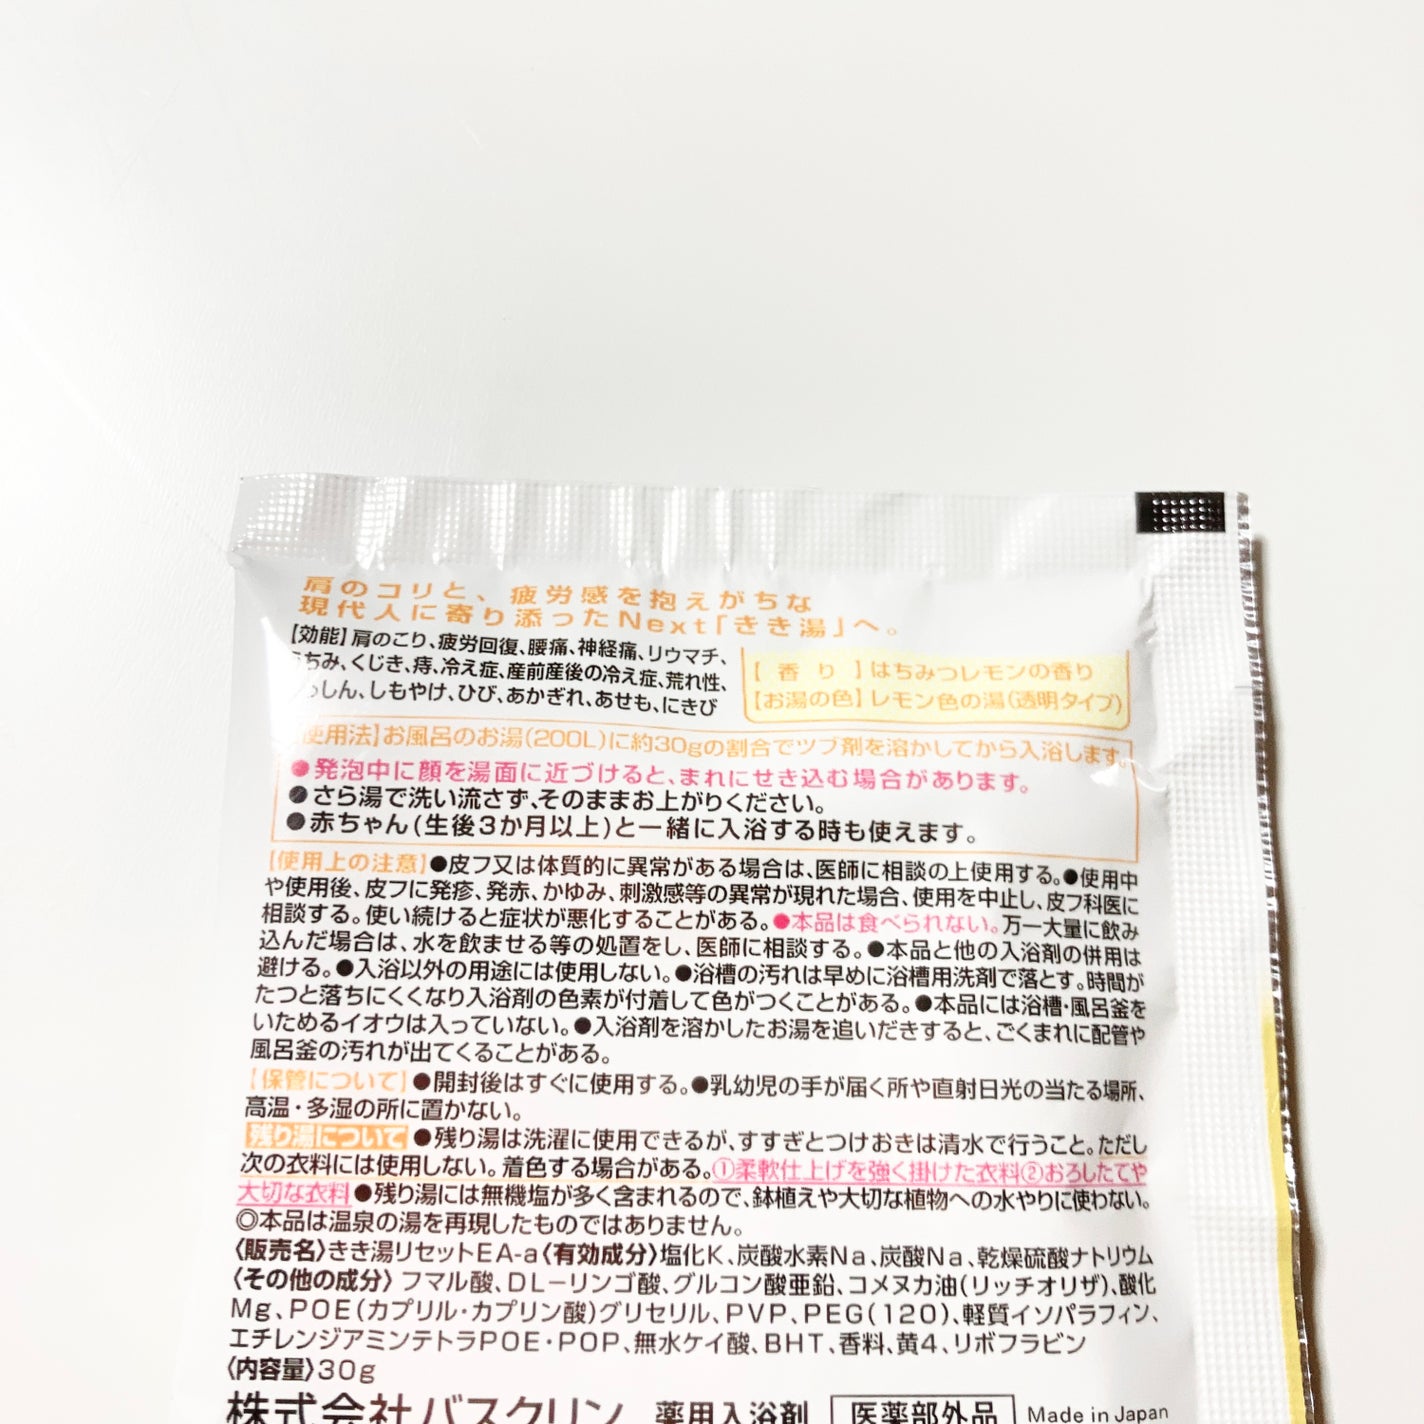 肩のコリと、疲労感を抱えがちな
現代人に寄り添ったNext「きき湯」へ。
【効能】肩のこり、疲労回復、腰痛、神経痛、リウマチ、
うちみ、くじき、痔、冷え症、産前産後の冷え症、荒れ性、
しっしん、しもやけ、ひび、あかぎれ、あせも、にきび
【 香 り 】はちみつレモンの香り
【お湯の色】レモン色の湯(透明タイプ)
【使用法】お風呂のお湯(200L)に約30gの割合でツブ剤を溶かしてから入浴します。
●発泡中に顔を湯面に近づけると、まれにせき込む場合があります。
●さら湯で洗い流さず、そのままお上がりください。
●赤ちゃん(生後3か月以上)と一緒に入浴する時も使えます。
【使用上の注意】●皮フ又は体質的に異常がある場合は、医師に相談の上使用する。●使用中
や使用後、皮フに発疹、発赤、かゆみ、刺激感等の異常が現れた場合、使用を中止し、皮フ科医に
相談する。使い続けると症状が悪化することがある。●本品は食べられない。万一大量に飲み
込んだ場合は、水を飲ませる等の処置をし、医師に相談する。●本品と他の入浴剤の併用は
避ける。●入浴以外の用途には使用しない。●浴槽の汚れは早めに浴槽用洗剤で落とす。時間が
たつと落ちにくくなり入浴剤の色素が付着して色がつくことがある。●本品には浴槽・風呂釜を
いためるイオウは入っていない。●入浴剤を溶かしたお湯を追いだきすると、ごくまれに配管や
風呂釜の汚れが出てくることがある。
【保管について】●開封後はすぐに使用する。●乳幼児の手が届く所や直射日光の当たる場所、
高温・多湿の所に置かない。
残り湯について ●残り湯は洗濯に使用できるが、すすぎとつけおきは清水で行うこと。ただし
次の衣料には使用しない。着色する場合がある。①柔軟仕上げを強く掛けた衣料②おろしたてや
大切な衣料 ●残り湯には無機塩が多く含まれるので、鉢植えや大切な植物への水やりに使わない。
◎本品は温泉の湯を再現したものではありません。
〈販売名〉きき湯リセットEA-a〈有効成分〉塩化K、炭酸水素Na、炭酸Na、乾燥硫酸ナトリウム
〈その他の成分〉フマル酸、DL－リンゴ酸、グルコン酸亜鉛、コメヌカ油(リッチオリザ)、酸化
Mg、POE(カプリル・カプリン酸)グリセリル、PVP、PEG(120)、軽質イソパラフィン、
エチレンジアミンテトラPOE・POP、無水ケイ酸、BHT、香料、黄4、リボフラビン
〈内容量〉30g
株式会社バスクリン 薬用入浴剤 医薬部外品 Made in Japan